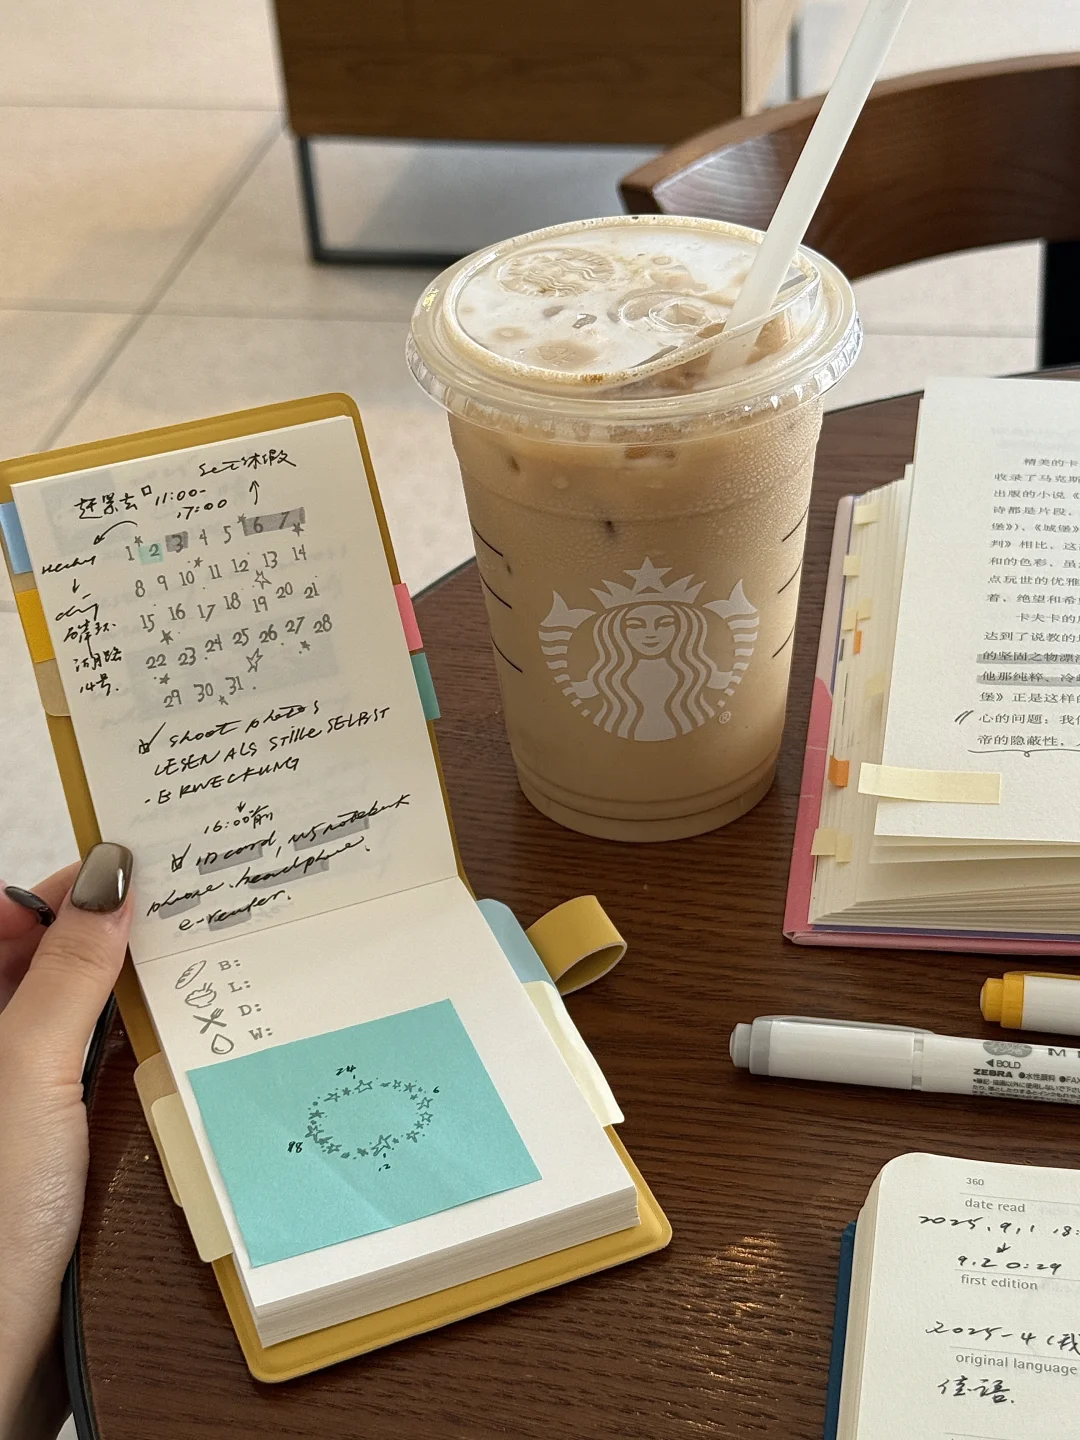 11:00-
17:00
1 2 3 4 5 6 7
8 9 10 11 12 13 14
15 16 17 18 19 20 21
22 23 24 25 26 27 28
29 30 31
14号.
shoot photos
LESEN ALS STILLE SELBST
-ERWECKUNG
16:00前
ID card, notebook
phone, headphone,
e-reader.
B:
L:
D:
W:
24
6
12
18
®
精美的卡
收录了马克斯
出版的小说《
诗都是片段、
堡》)、《城堡》
判》相比,这
和的色彩,虽
点玩世的优雅
着、绝望和希
卡夫卡的
达到了说教的
的坚固之物漂
他那纯粹、冷
堡》正是这样的
心的问题:我们
帝的隐蔽性,
◀BOLD
ZEBRA ●水性顔料 ●FA
360
date read
2025.9.1 18:
9.2 0:29
first edition
2025-4 (我
original language